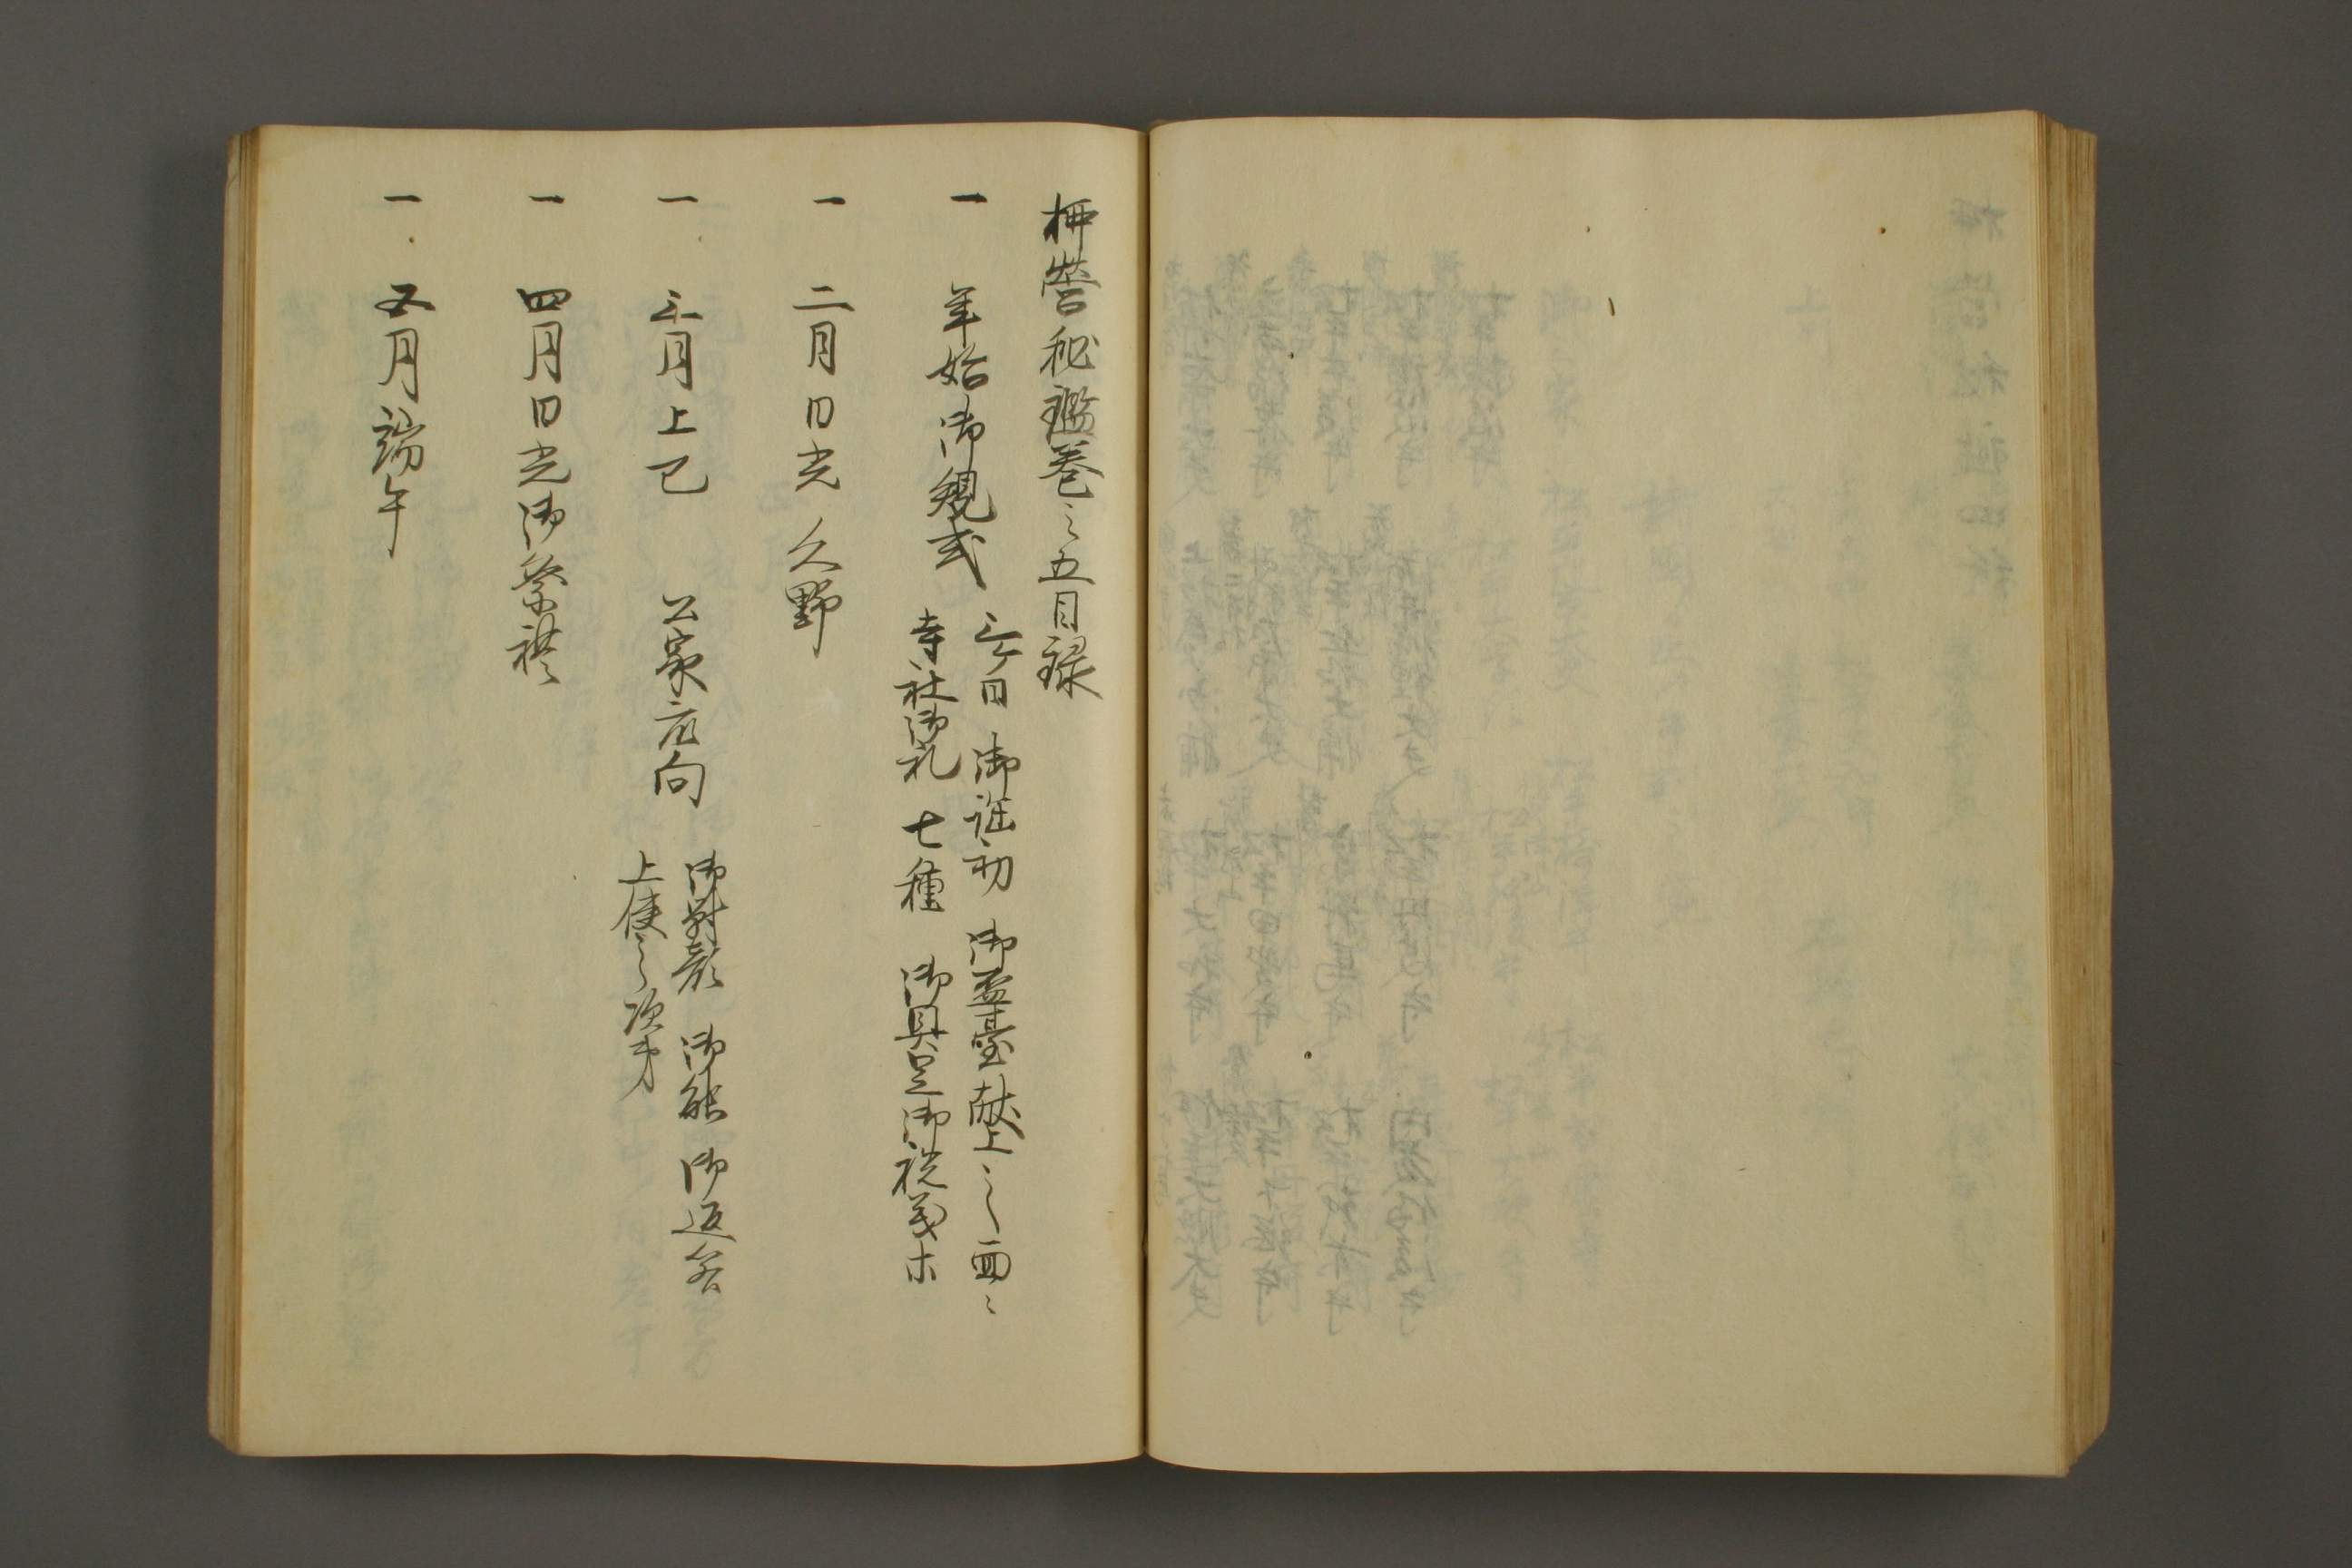 柳営秘鑑巻之五目録
一 年始御規式
三ケ日 御謡初 御盃臺献上之面〻
寺社御礼 七種 御具足御祝義ホ
一 二月日光久野
一 三月上巳 公家下向
御対顔 御能 御返答
上使之次第
一 四月日光御祭礼
一 五月端午